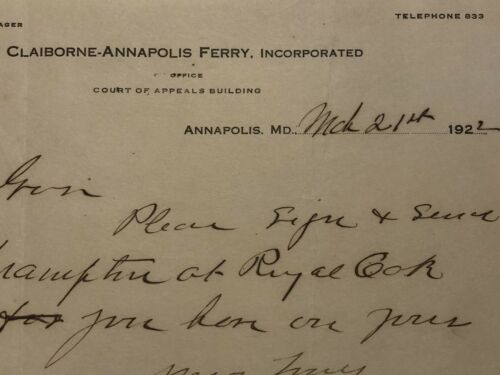 AGER
TELEPHONE 833
CLAIBORNE-ANNAPOLIS FERRY, INCORPORATED
OFFICE
COURT OF APPEALS BUILDING
ANNAPOLIS, MD. Mch 21st 1922
Please Sign & Send
rampton at Royal Oak
for you on your